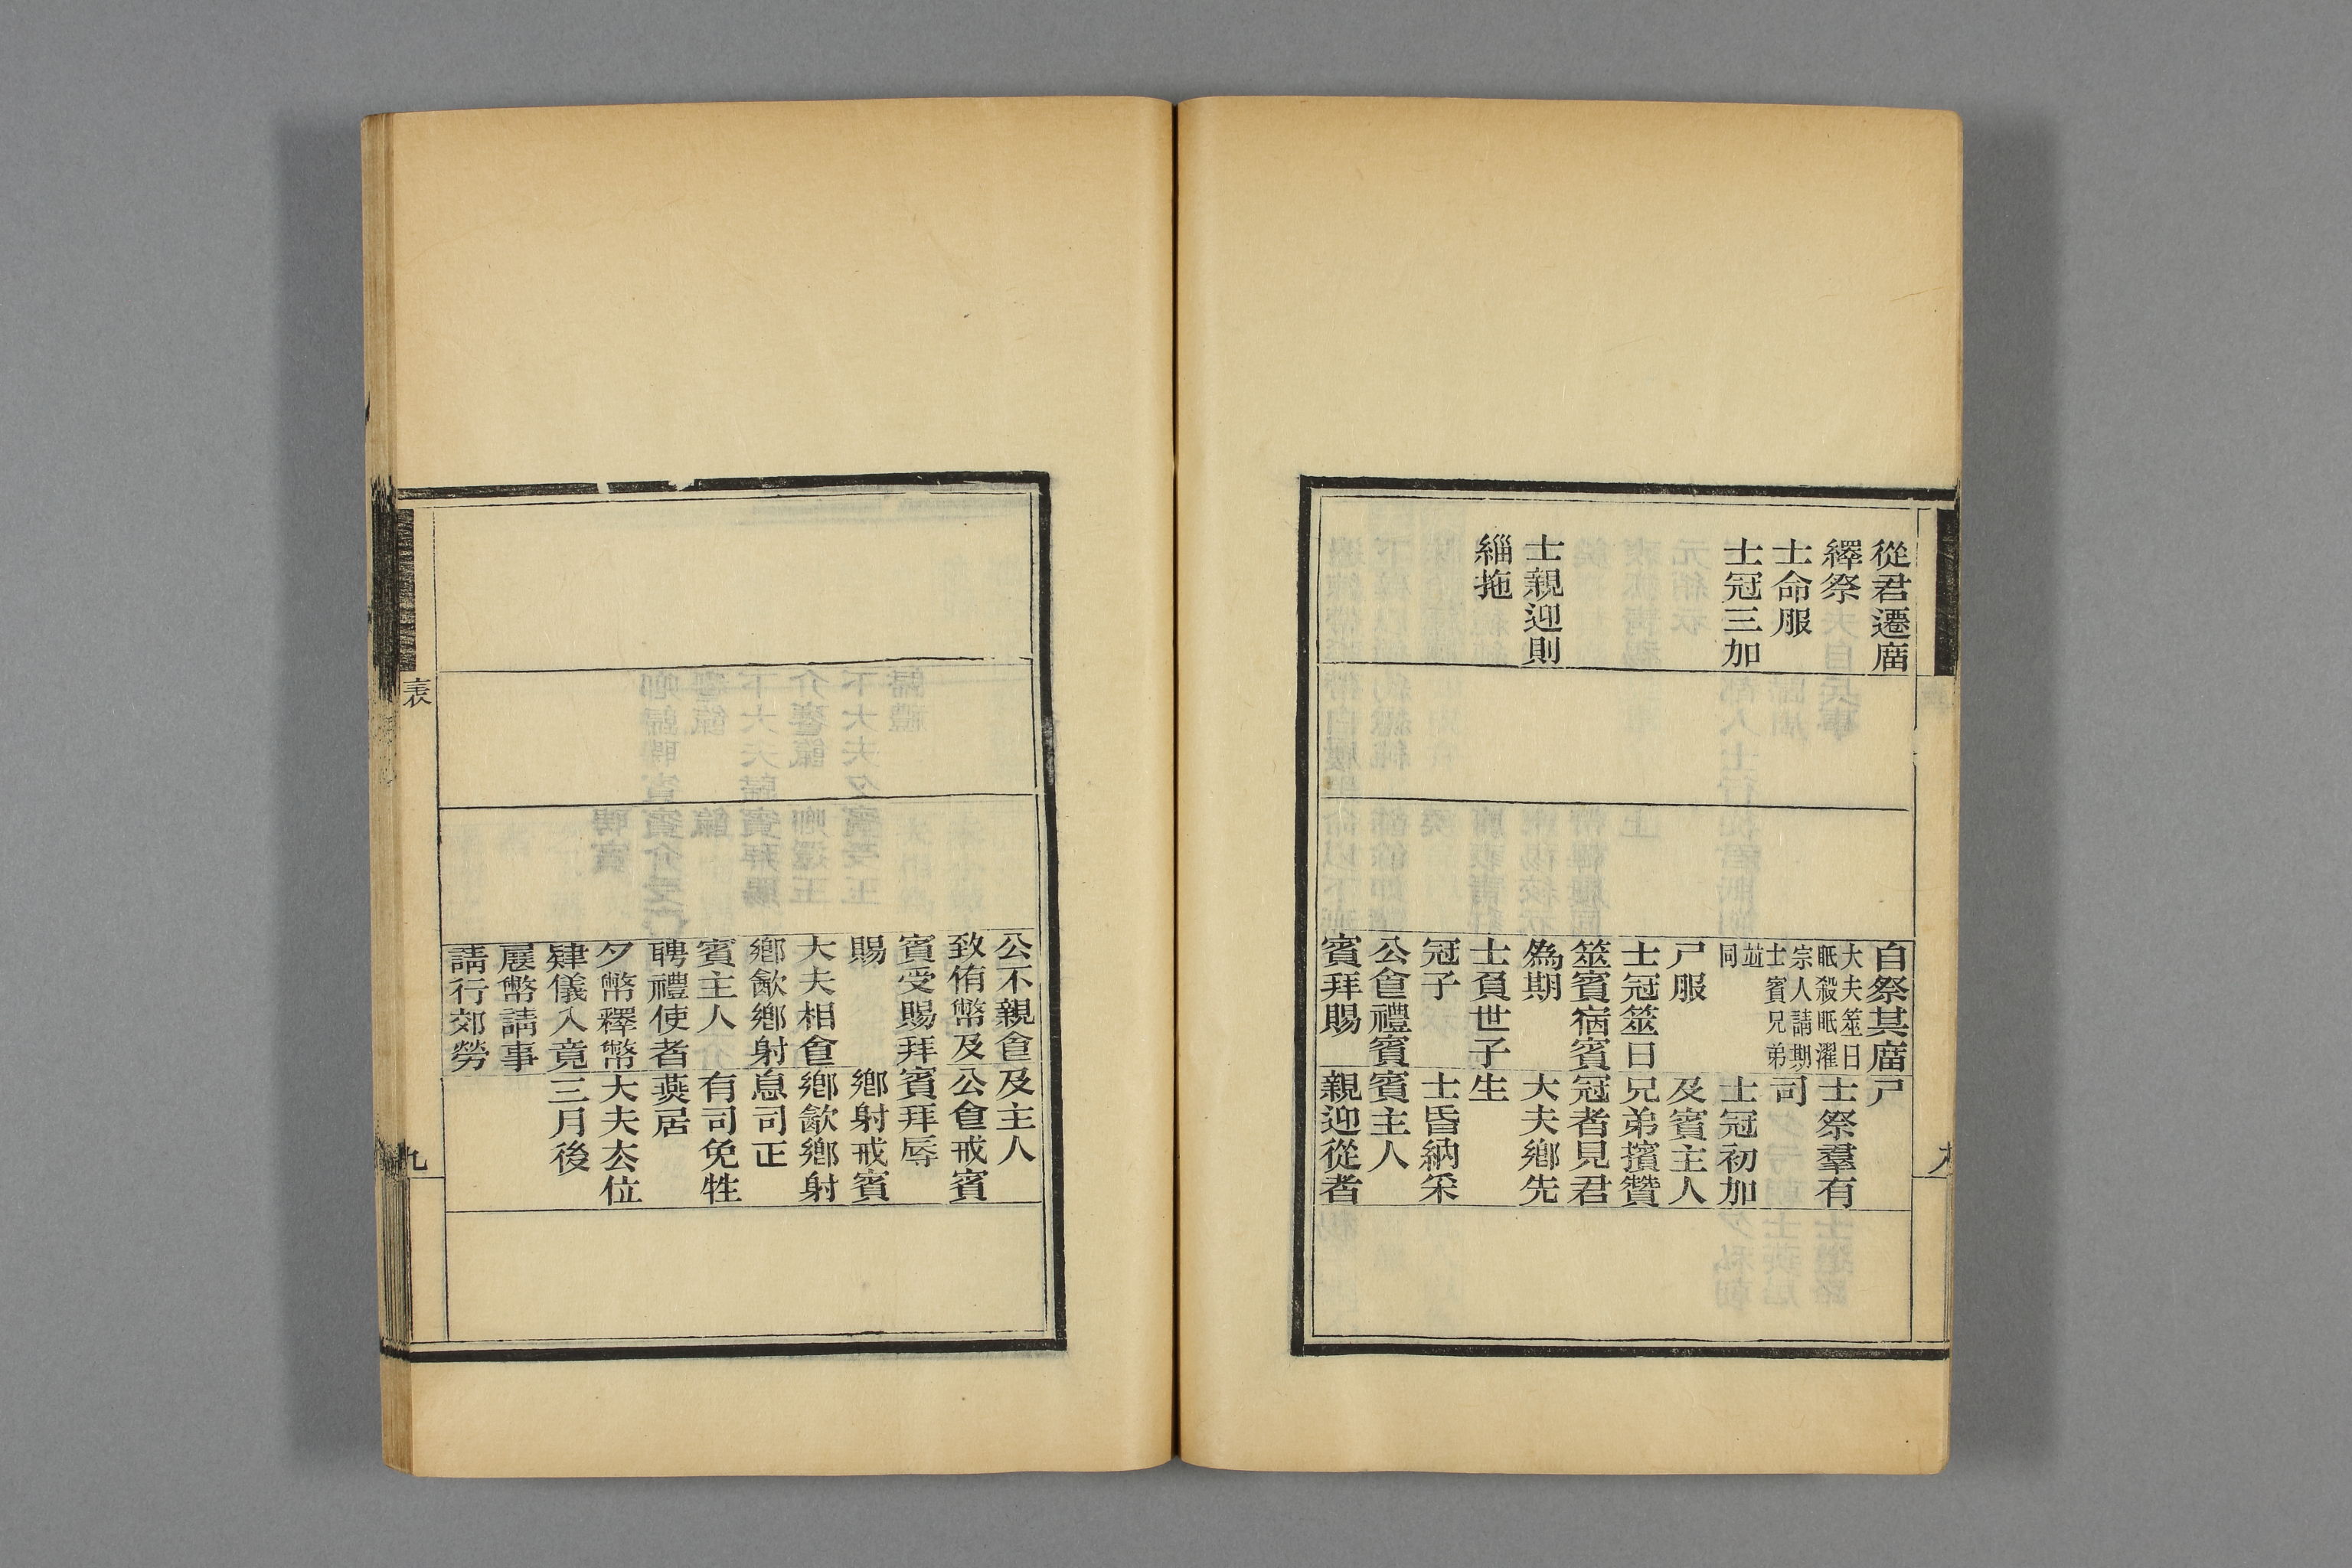 從君遷廟
繹祭
士命服
士冠三加
士親迎則
緇拖
自祭其廟
大夫筮日
眡殺眡濯
宗人請期
士賓兄弟
竝
同
尸服
士冠筮日
筮賓宿賓
為期
士負世子
冠子
公食禮賓
賓拜賜
尸
士祭羣有
司
士冠初加
及賓主人
兄弟擯贊
冠者見君
大夫鄉先
生
士昏納采
賓主人
親迎從者
九
公不親食
致侑幣及
賓受賜拜
賜
大夫相食
鄉飲鄉射
賓主人
聘禮使者
夕幣釋幣
肄儀入竟
展幣請事
請行郊勞
及主人
公食戒賓
賓拜辱
鄉射戒賓
鄉飲鄉射
息司正
有司免牲
燕居
大夫去位
三月後
表
九